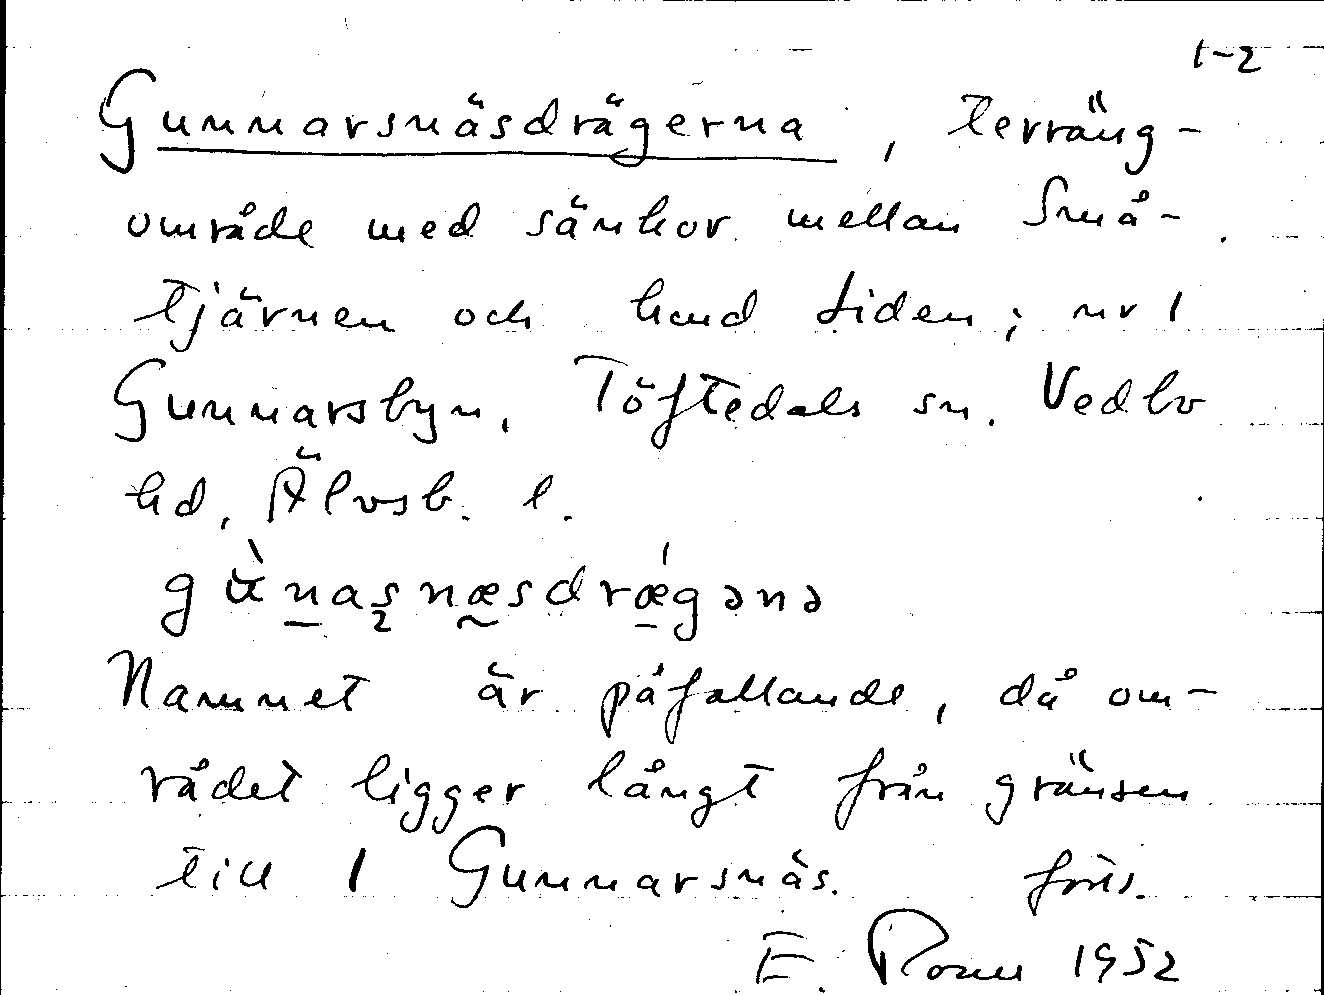 1-2
Gunnarsnäsdrägerna, terräng-
område med sänkor mellan Små-
tjärnen och land liden; nr 1
Gunnarsbyn, Töftedals sn. Vedbo
hd, Älvsb. l.
gùnaʂnæsdrǽgənə
Namnet är påfallande, då om-
rådet ligger långt från gränsen
till 1 Gunnarsnäs. forts.
E. 1952